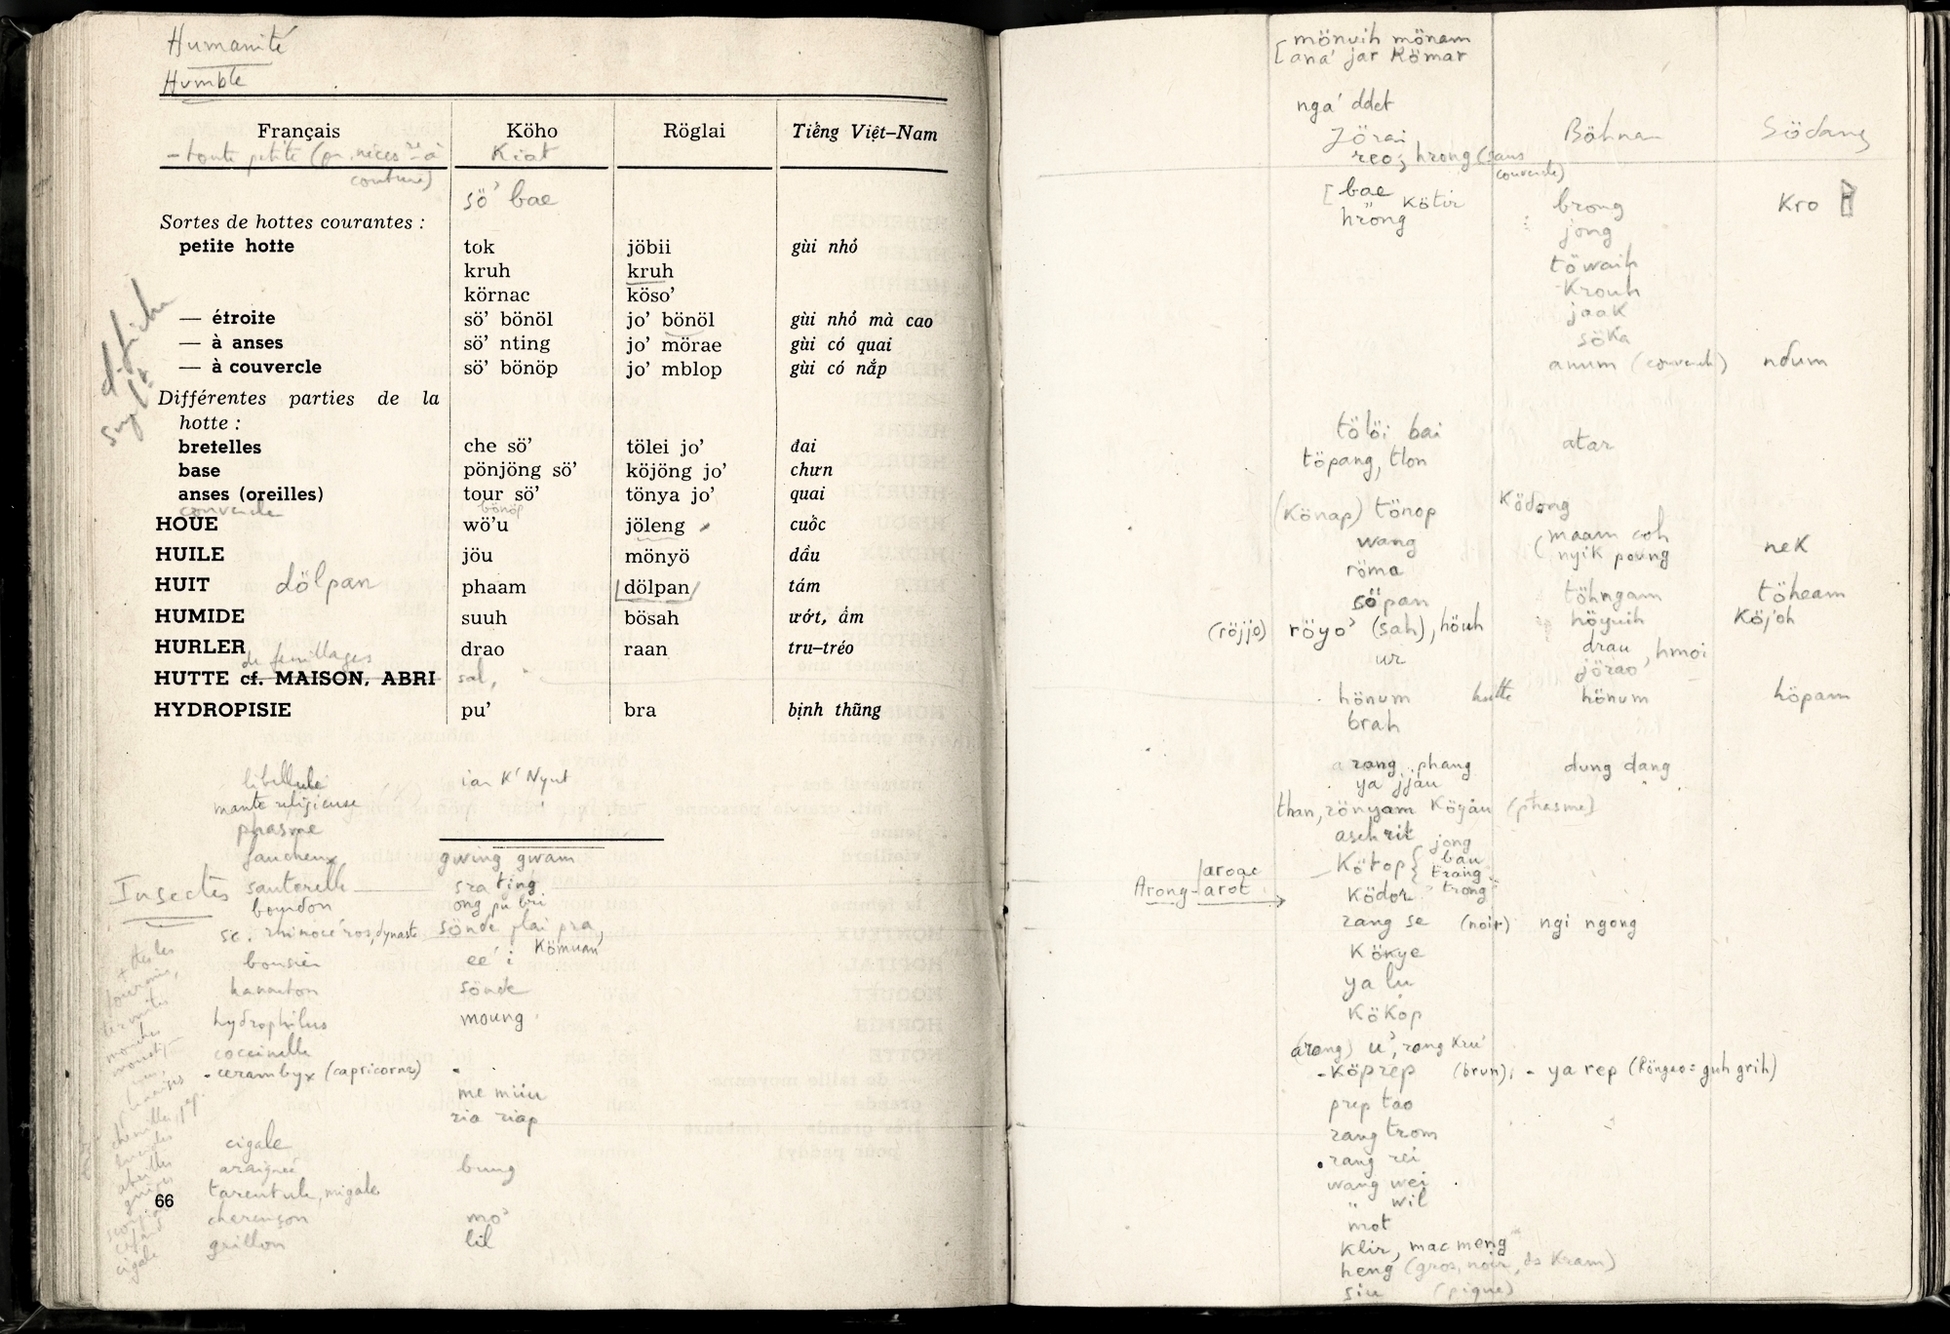 Humanité
Humble
Français Köho Röglai Tiếng Việt–Nam
– toute petite Kiat
couture)
sö’ bae
Sortes de hottes courantes :
petite hotte tok jöbii gùi nhỏ
kruh kruh
körnac köso’
— étroite sö’ bönöl jo’ bönöl gùi nhỏ mà cao
— à anses sö’ nting jo’ mörae gùi có quai
— à couvercle sö’ bönöp jo’ mblop gùi có nắp
Différentes parties de la
hotte :
bretelles che sö’ tölei jo’ đai
base pönjöng sö’ köjöng jo’ chưn
anses (oreilles) tour sö’ tönya jo’ quai
couvercle bönöp
HOUE wö’u jöleng cuốc
HUILE jöu mönyö dầu
HUIT dölpan phaam dölpan tám
HUMIDE suuh bösah ướt, ẩm
HURLER drao raan tru–tréo
de feuillages
HUTTE cf. MAISON, ABRI sal,
HYDROPISIE pu’ bra bịnh thũng
libellule ian K’ Nyut
mante religieuse
phasme
faucheux gwing gwam
Insectes sauterelle sra ting
bourdon ong pu bri
sc. rhinocéros, dynaste sönde plai pra,
Kömuan
bousier ee’ i
hanneton sönde
hydrophilus moung
coccinelle
- cerambyx (capricorne)
me miiu
ria riap
cigale
araignée bung
tarentule, migale
charençon mo’
grillon lil
66
mönuih mönam
[ana’ jar Kömar
nga’ ddet
Jörai Böhnar Södang
reo; hrong (sans
couvercle)
[bae Kötir brong Kro
hröng jong
töwaih
Krouh
jaaK
söKa
anum (couvercle) ndum
tölöi bai atar
töpang, tlon
(Könap) tönop Ködong
wang (maam coh neK
nyiK poung
röma
söpan töhngam töheam
(röjjo) röyo’ (sah), höuh höyuih Köjoh
ur drau, hmoi
jörao
hönum hutte hönum höpam
brah
arang phang dung dang
ya jjau
than, rönyam Köyau (phasme)
aseh rit
Kötop { jong
bau
trang
trong
jaroac
Arong-arot Ködor
rang se (noir) ngi ngong
Kökye
ya lu
KöKop
(arong) u’, rang Kru’
- Köprep (brun); - ya rep (Röngao = guh grih)
prep tao
rang trom
rang rei
wang wei
" wil
mot
Klir, mac meng
heng (gros, noir, ds Kram)
siu (pique)